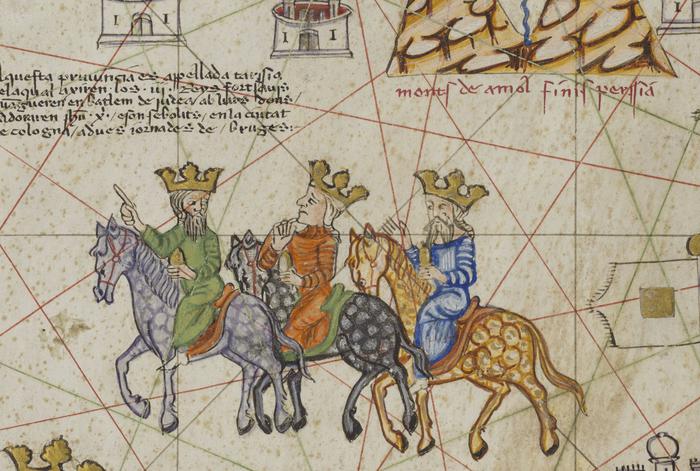 questa provincia es apellada tarssia
elaqual axiren los .iii. Reys fort savis
vagueren en batlem de judea ab lurs dons
adoraren jhu .xº. e son sebolits en la ciutat
e cologna a dues iornades de bruges:
monts de amol finis perssia